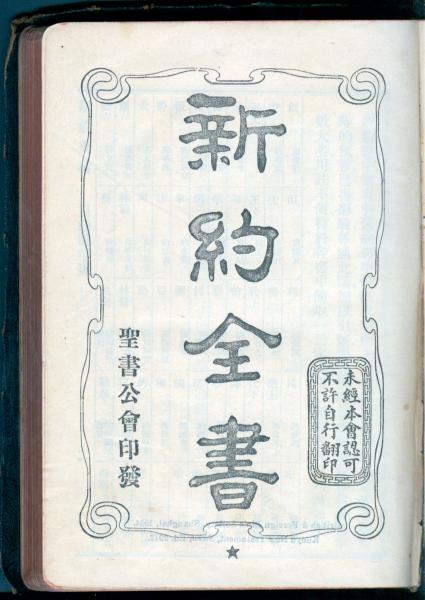 未經本會認可
不許自行翻印
新約全書
聖書公會印發